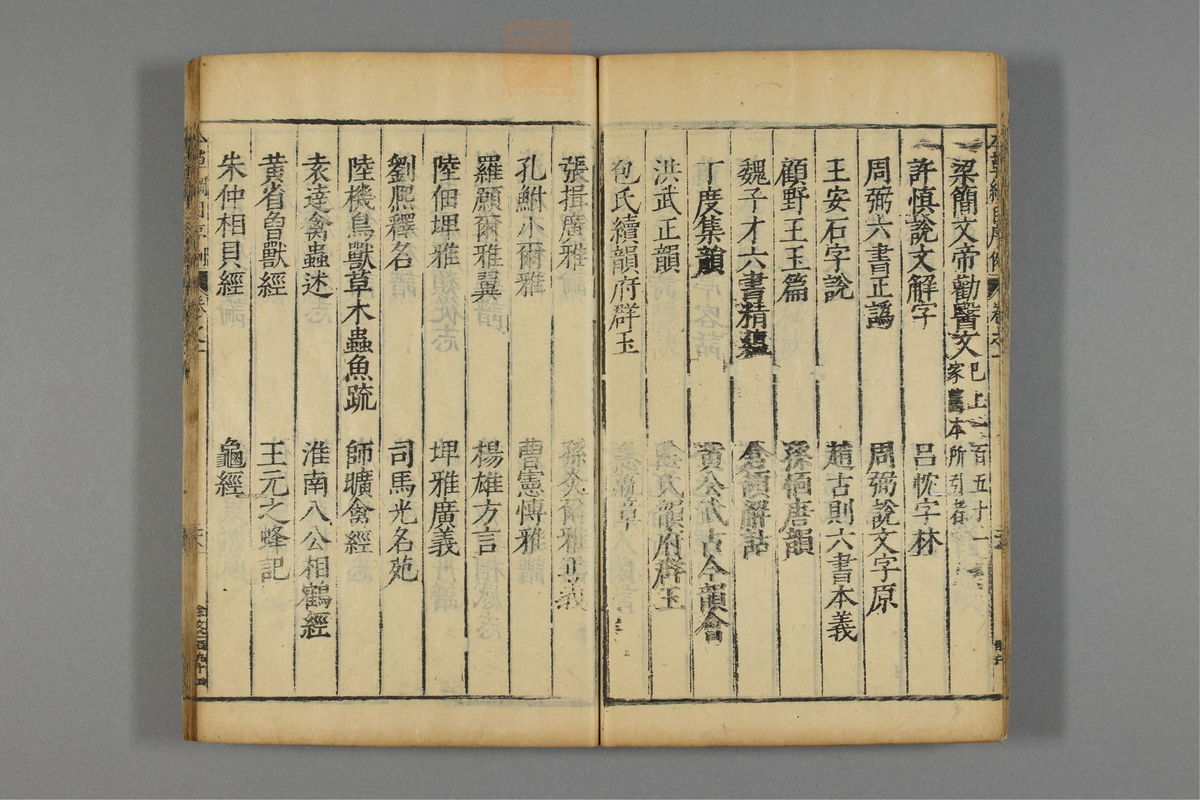 梁簡文帝勸醫文 已上二百五十一家舊本所引者
許慎說文解字 呂忱字林
周弼六書正譌 周弼說文字原
王安石字說 趙古則六書本義
顧野王玉篇 孫愐唐韻
魏子才六書精蘊 倉頡解詁
丁度集韻 黃公武古今韻會
洪武正韻 陰氏韻府群玉
包氏續韻府群玉
張揖廣雅 孫炎爾雅正義
孔鮒小爾雅 曹憲博雅
羅願爾雅翼 楊雄方言
陸佃埤雅 埤雅廣義
劉熈釋名 司馬光名苑
陸機鳥獸草木蟲魚䟽 師曠禽經
袁達禽蟲述 淮南八公相鶴經
黃省曾獸經 王元之蜂記
朱仲相貝經 龜經